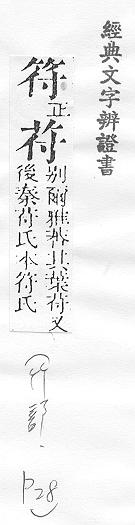 經典文字辨證書
符正苻別爾雅其葉苻又
後秦苻氏本符氏
竹部、
P28